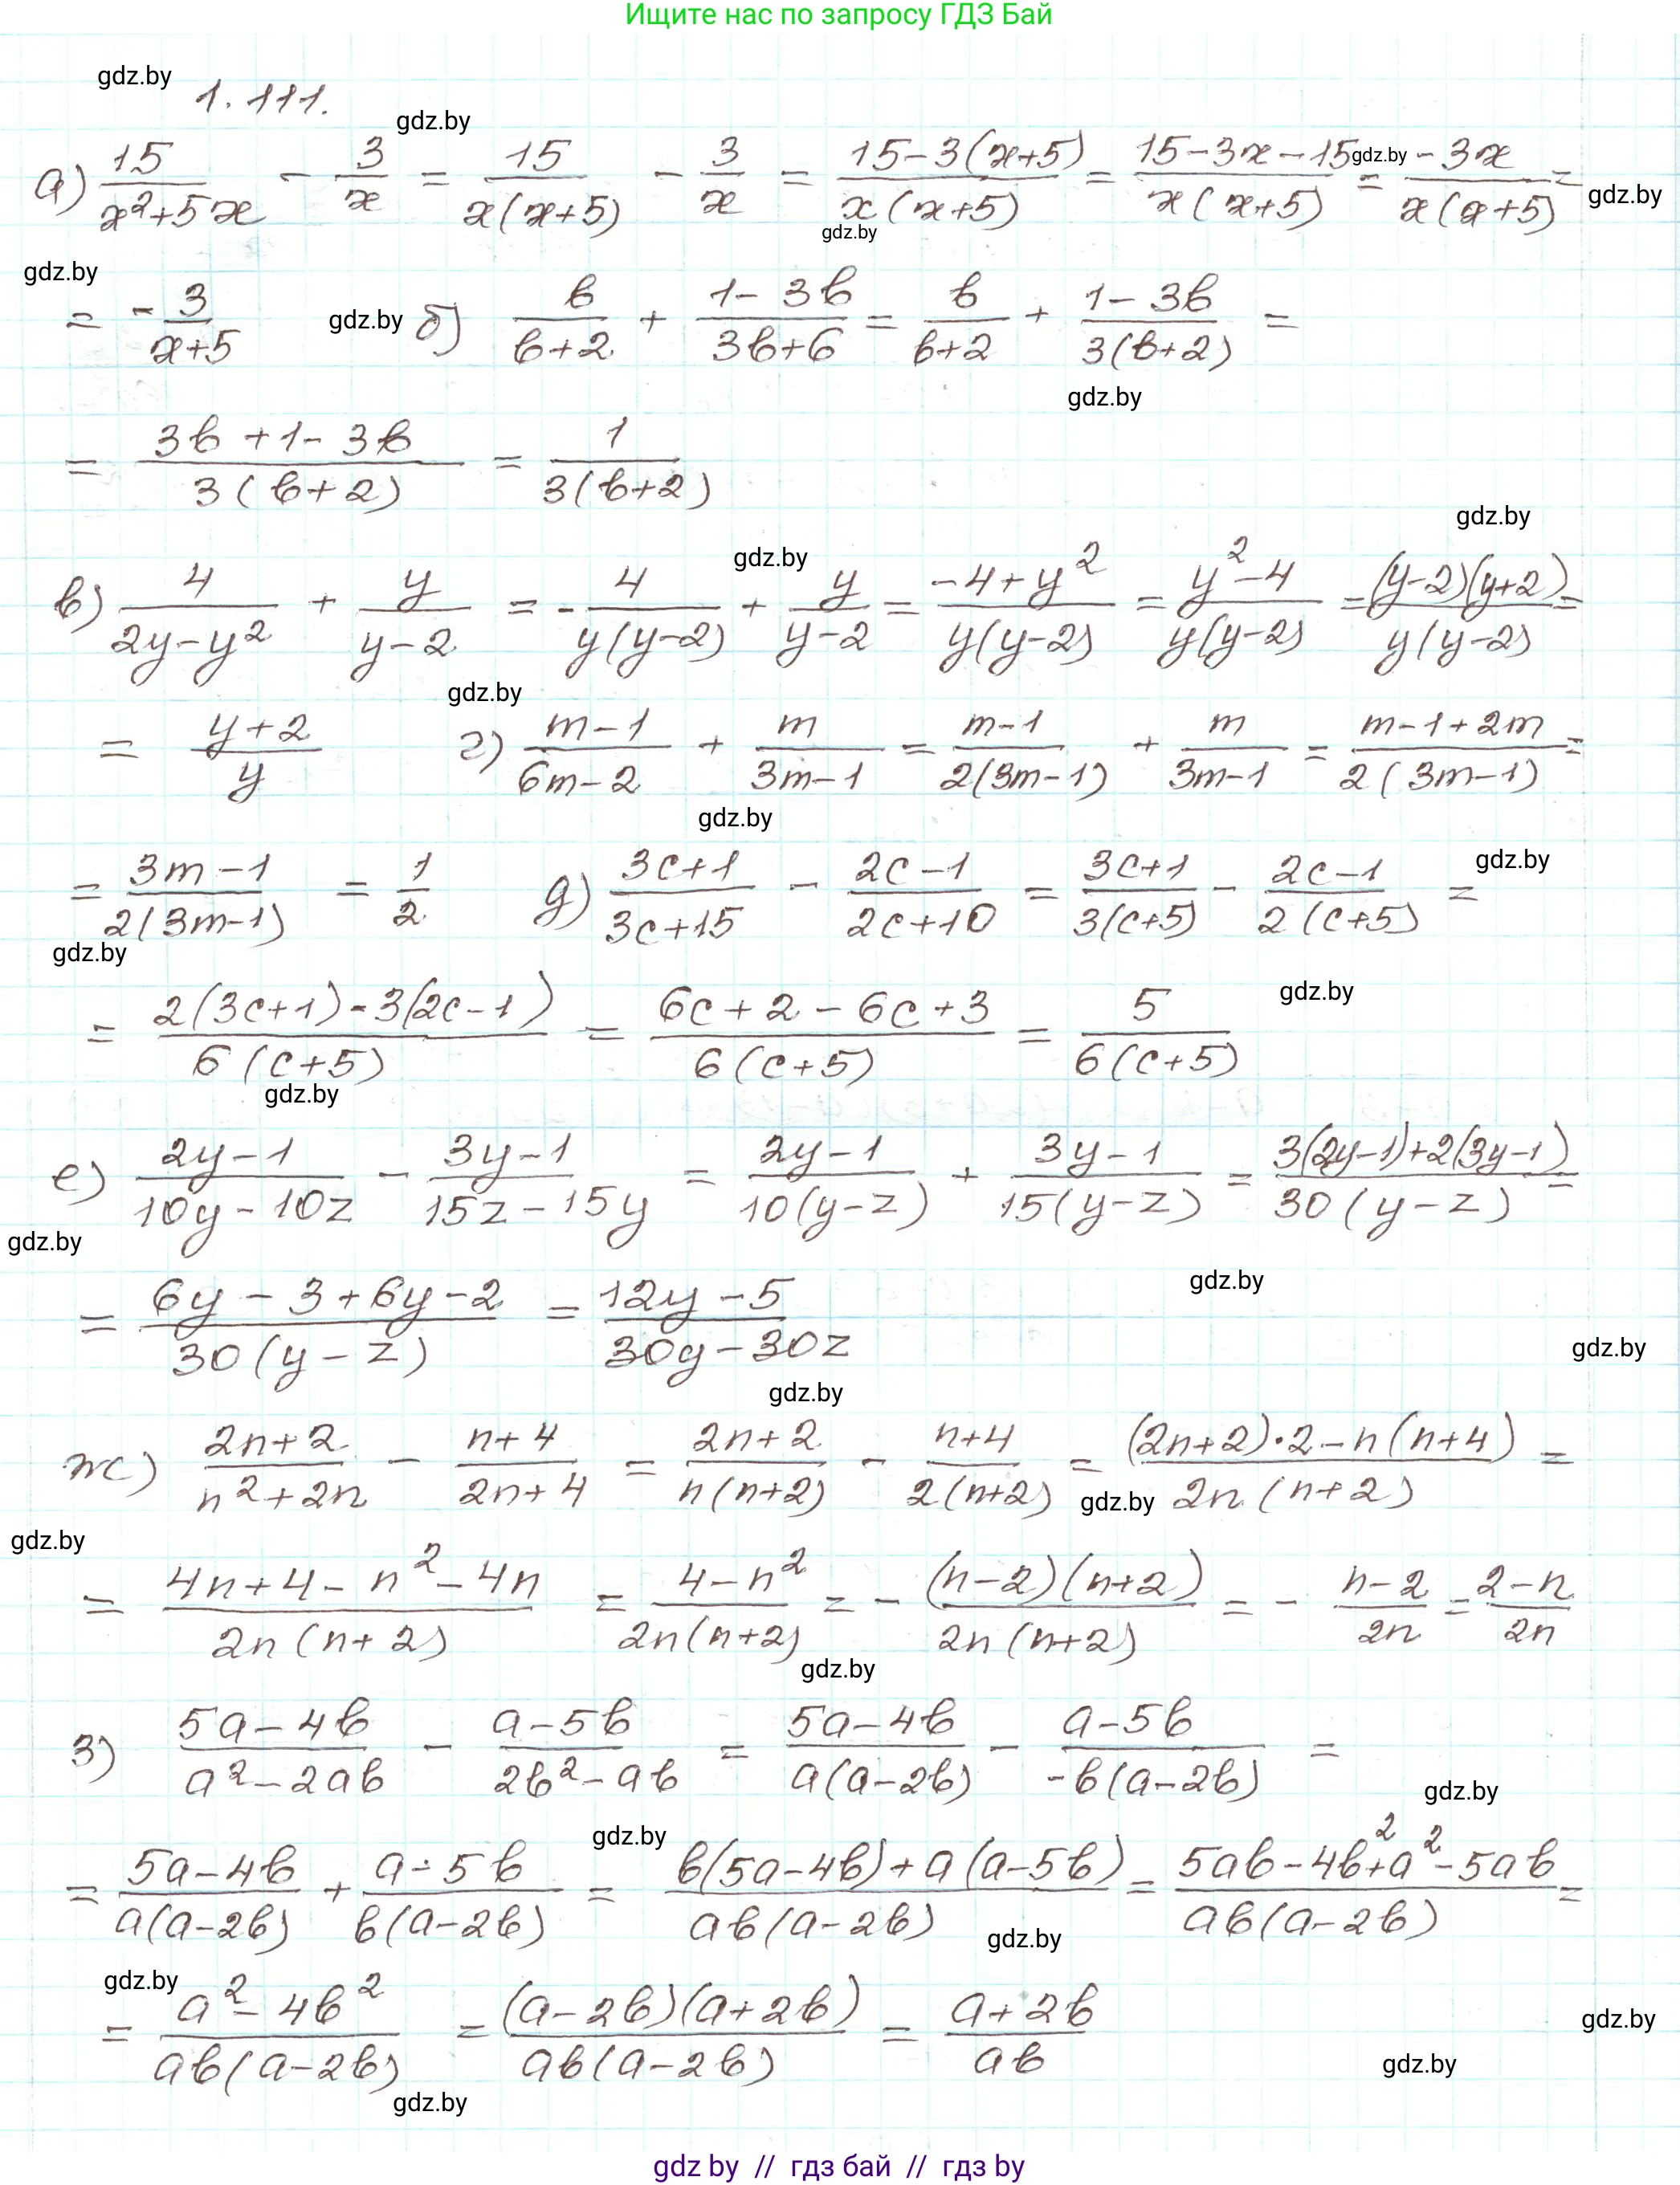 Ищите нас по запросу ГДЗ Бай
gdz.by
1.111.
gdz.by
а) 15/(x²+5x) - 3/x = 15/(x(x+5)) - 3/x = (15-3(x+5))/(x(x+5)) = (15-3x-15)/(x(x+5)) = (-3x)/(x(x+5)) =
gdz.by
gdz.by
gdz.by
gdz.by
= -3/(x+5) gdz.by б) b/(b+2) + (1-3b)/(3b+6) = b/(b+2) + (1-3b)/(3(b+2)) =
gdz.by
= (3b+1-3b)/(3(b+2)) = 1/(3(b+2))
gdz.by
gdz.by
в) 4/(2y-y²) + y/(y-2) = -4/(y(y-2)) + y/(y-2) = (-4+y²)/(y(y-2)) = (y²-4)/(y(y-2)) = ((y-2)(y+2))/(y(y-2)) =
gdz.by
= (y+2)/y г) (m-1)/(6m-2) + m/(3m-1) = (m-1)/(2(3m-1)) + m/(3m-1) = (m-1+2m)/(2(3m-1)) =
gdz.by
= (3m-1)/(2(3m-1)) = 1/2 д) (3c+1)/(3c+15) - (2c-1)/(2c+10) = (3c+1)/(3(c+5)) - (2c-1)/(2(c+5)) =
gdz.by
gdz.by
= (2(3c+1)-3(2c-1))/(6(c+5)) = (6c+2-6c+3)/(6(c+5)) = 5/(6(c+5))
gdz.by
gdz.by
е) (2y-1)/(10y-10z) - (3y-1)/(15z-15y) = (2y-1)/(10(y-z)) + (3y-1)/(15(y-z)) = (3(2y-1)+2(3y-1))/(30(y-z)) =
gdz.by
= (6y-3+6y-2)/(30(y-z)) = (12y-5)/(30y-30z)
gdz.by
gdz.by
gdz.by
ж) (2n+2)/(n²+2n) - (n+4)/(2n+4) = (2n+2)/(n(n+2)) - (n+4)/(2(n+2)) = ((2n+2)·2-n(n+4))/(2n(n+2)) =
gdz.by
gdz.by
= (4n+4-n²-4n)/(2n(n+2)) = (4-n²)/(2n(n+2)) = - ((n-2)(n+2))/(2n(n+2)) = - (n-2)/(2n) = (2-n)/(2n)
gdz.by
з) (5a-4b)/(a²-2ab) - (a-5b)/(2b²-ab) = (5a-4b)/(a(a-2b)) - (a-5b)/(-b(a-2b)) =
gdz.by
gdz.by
= (5a-4b)/(a(a-2b)) + (a-5b)/(b(a-2b)) = (b(5a-4b)+a(a-5b))/(ab(a-2b)) = (5ab-4b²+a²-5ab)/(ab(a-2b)) =
gdz.by
gdz.by
= (a²-4b²)/(ab(a-2b)) = ((a-2b)(a+2b))/(ab(a-2b)) = (a+2b)/(ab)
gdz.by
gdz.by
gdz.by
gdz by // гдз бай // гдз by